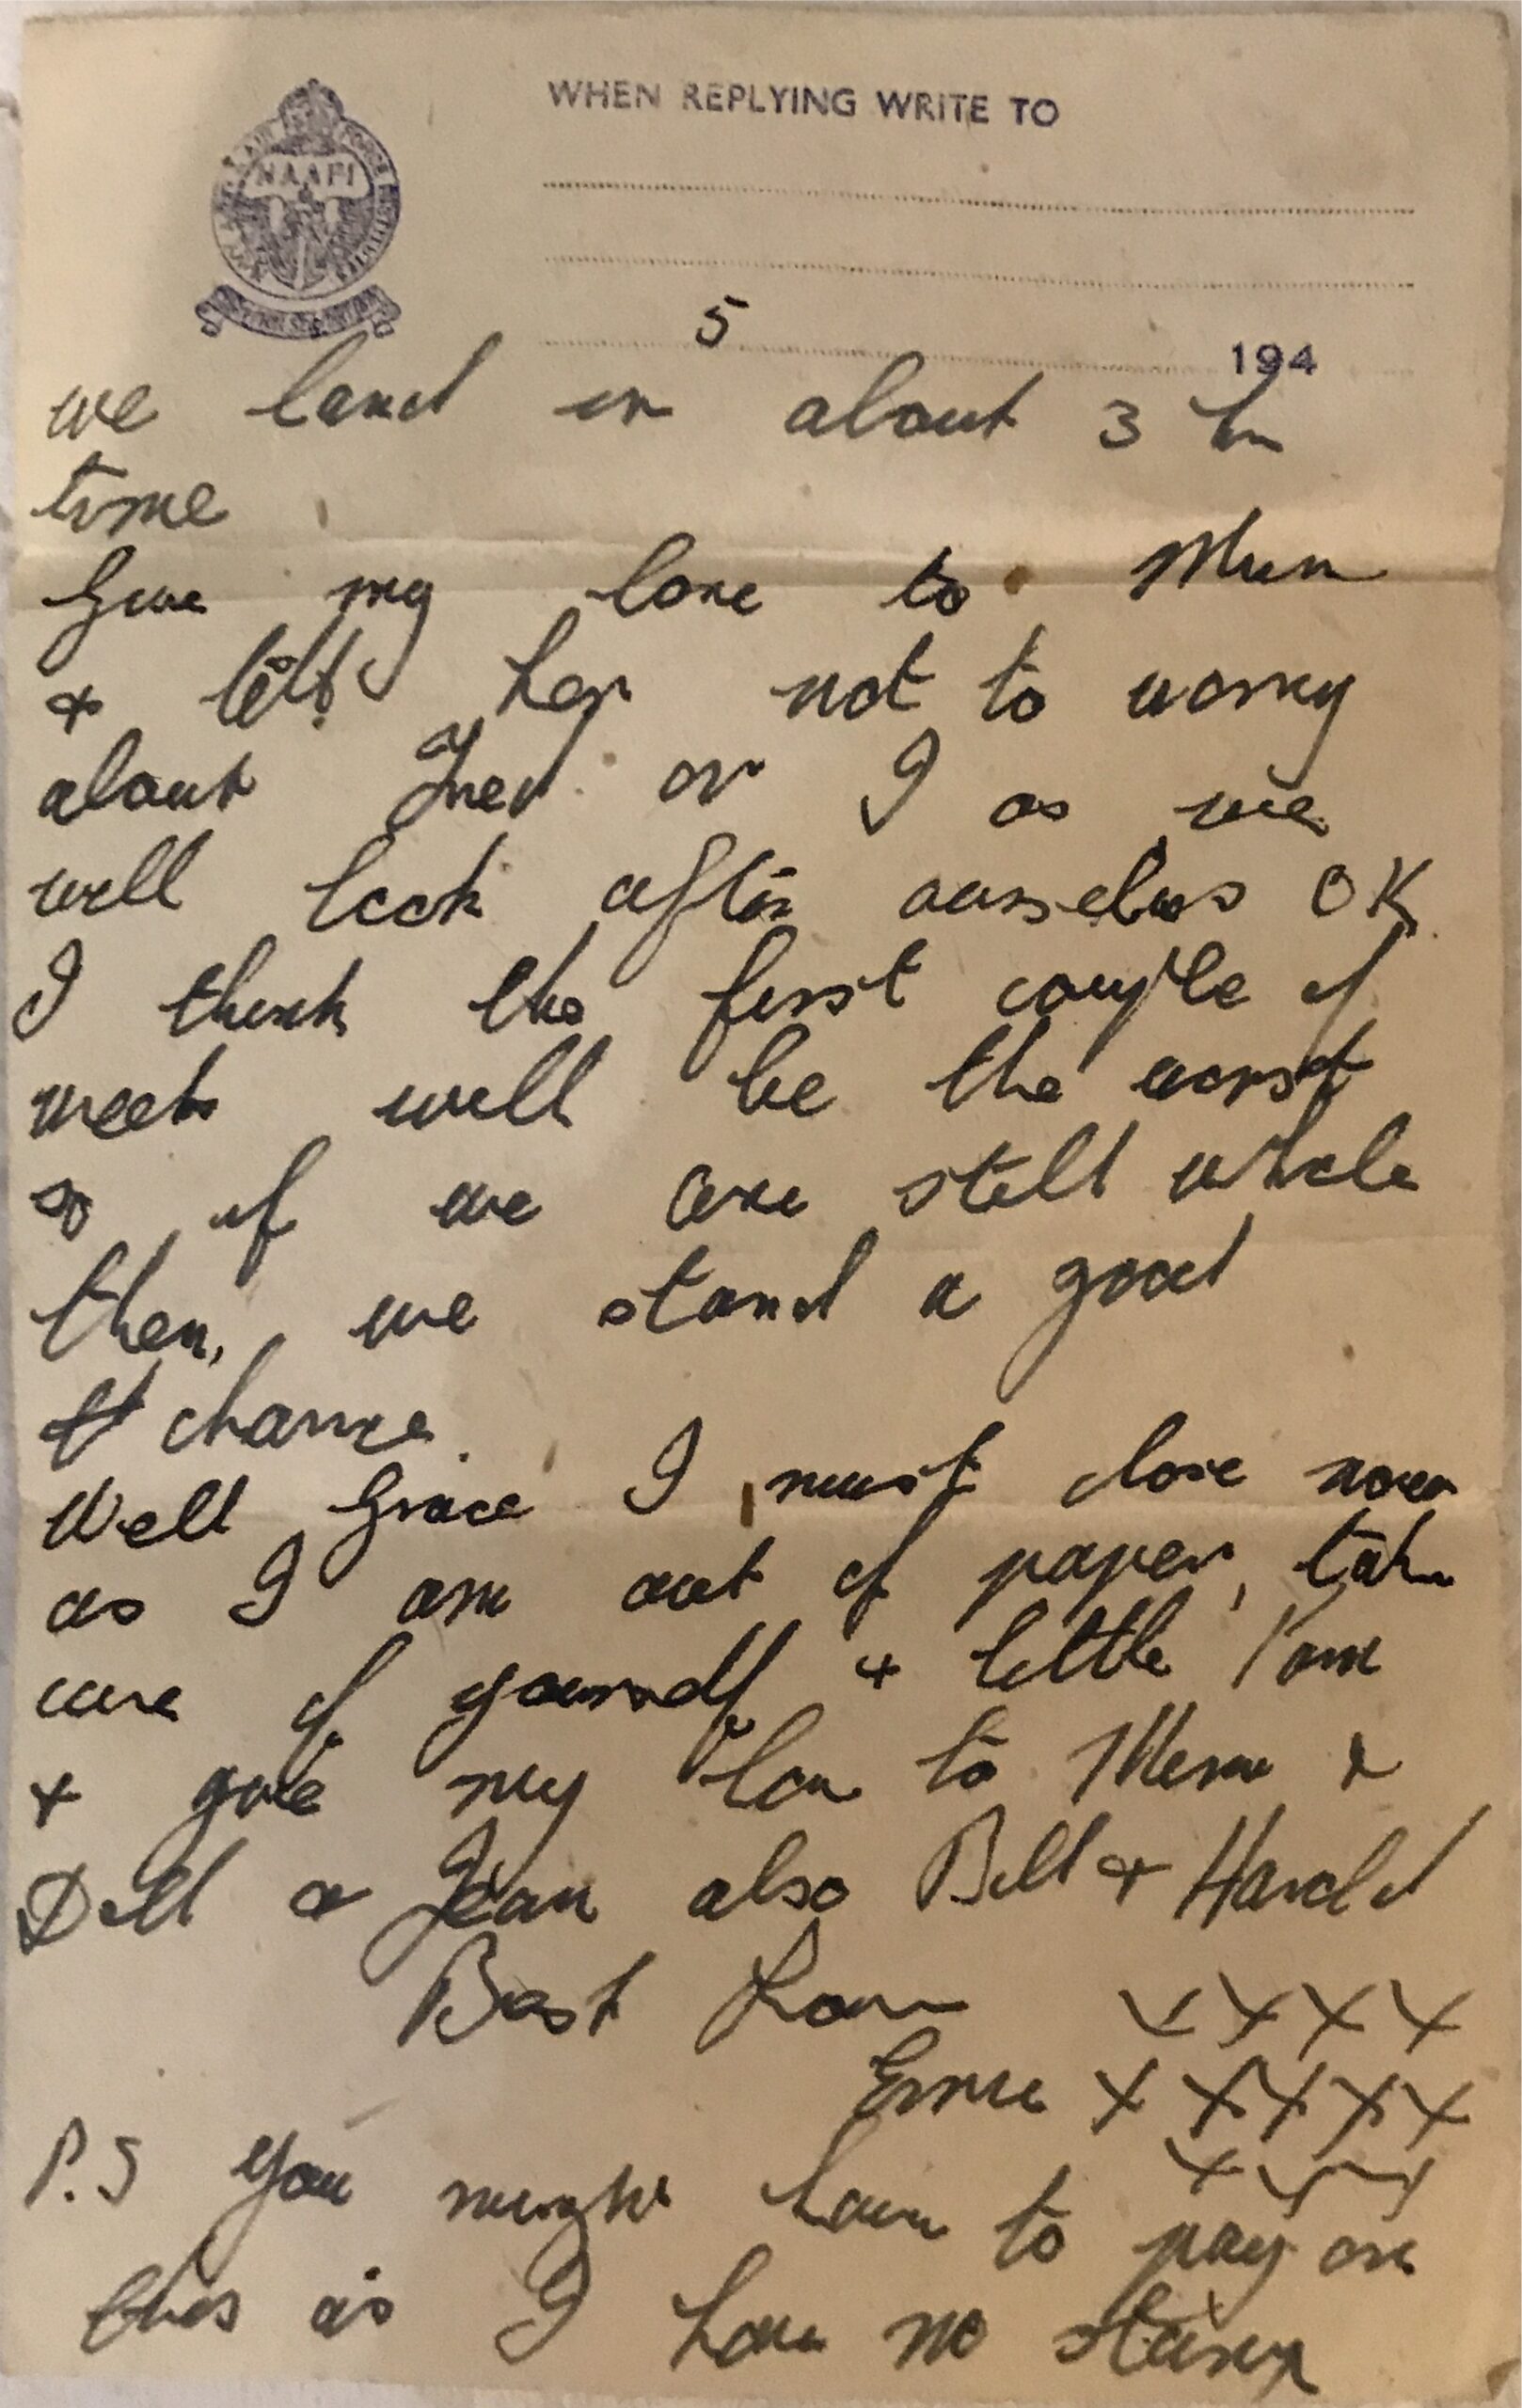 WHEN REPLYING WRITE TO
NAAFI
5
194
we land in about 3 hr
time
Give my love to Mum
& tell her not to worry
about Fred or I as we
will look after ourselves OK
I think the first couple of
weeks will be the worst
so if we are still whole
then, we stand a good
chance.
Well Grace I must close now
as I am out of paper, take
care of yourself & little Pam
& give my love to Mum &
Dill & Jean also Bill & Harold
Best Love xxxx
Ernie xxxxx
xxx
P.S You might have to pay on
this as I have no stamp